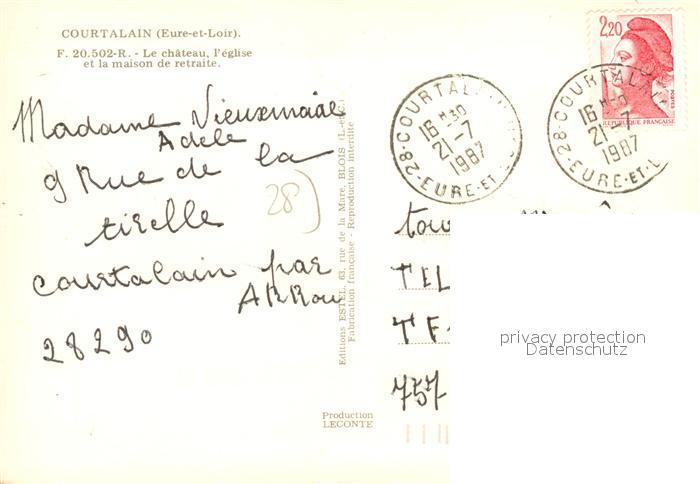 COURTALAIN (Eure-et-Loir).
F. 20.502-R. - Le château, l'église
et la maison de retraite.
Madame Vieuxmaire
Adele
9 Rue de la
tirelle
courtalain par
ARROU
28290
28)
Editions ESTEL, 63, rue de la Mare, BLOIS (L.-et-C.)
Fabrication française - Reproduction interdite
Production
LECONTE
28-COURTALAIN
16 H 30
21-7
1987
EURE-ET-L
28-COURTALAIN
16 H 30
21-7
1987
EURE-ET-L
2,20
POSTES
REPUBLIQUE FRANÇAISE
TEL
757
privacy protection
Datenschutz